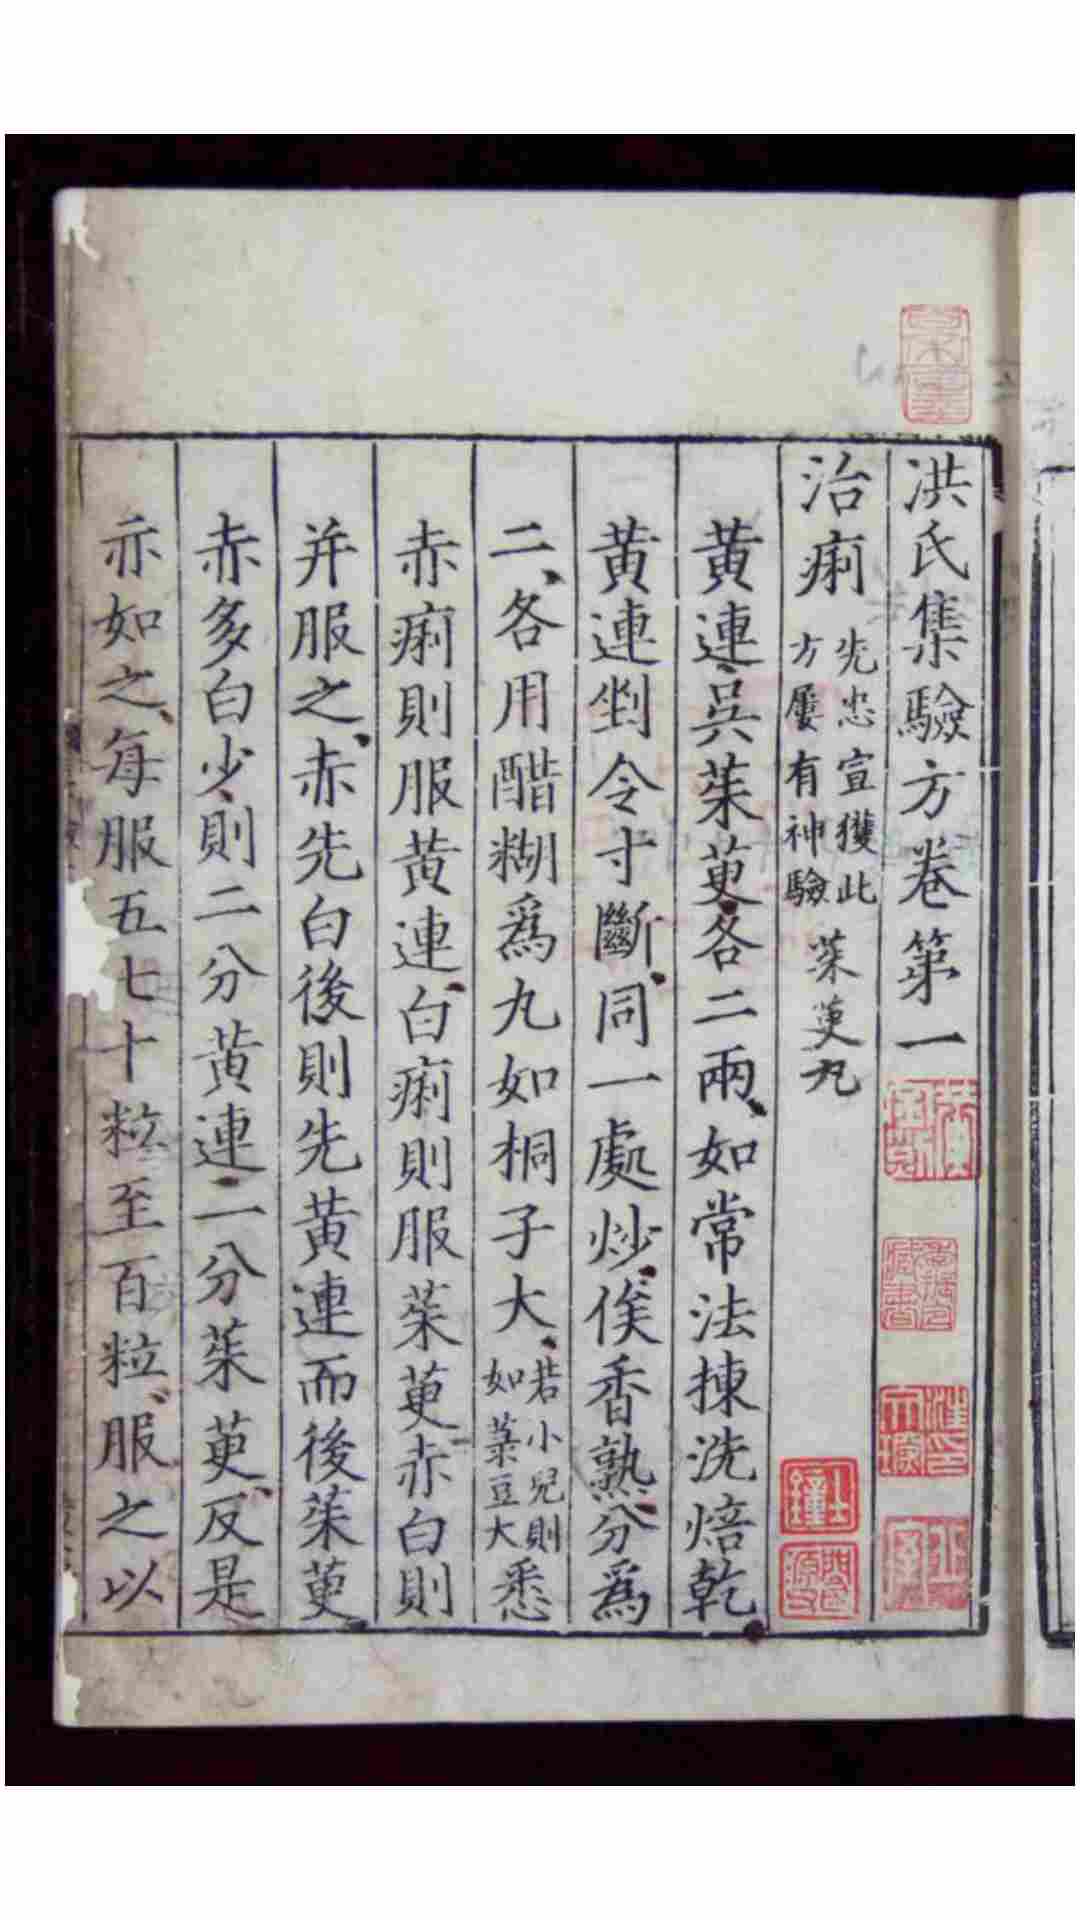 洪氏集驗方卷第一
治痢 先忠宣獲此方屢有神驗 茱萸丸
黄連吳茱萸各二兩如常法揀洗焙乾
黄連剉令寸斷同一處炒俟香熟分爲
二各用醋糊爲九如桐子大 若小兒則如菉豆大 悉
赤痢則服黄連白痢則服茱萸赤白則
并服之赤先白後則先黄連而後茱萸
赤多白少則二分黄連一分茱萸反是
亦如之每服五七十粒至百粒服之以